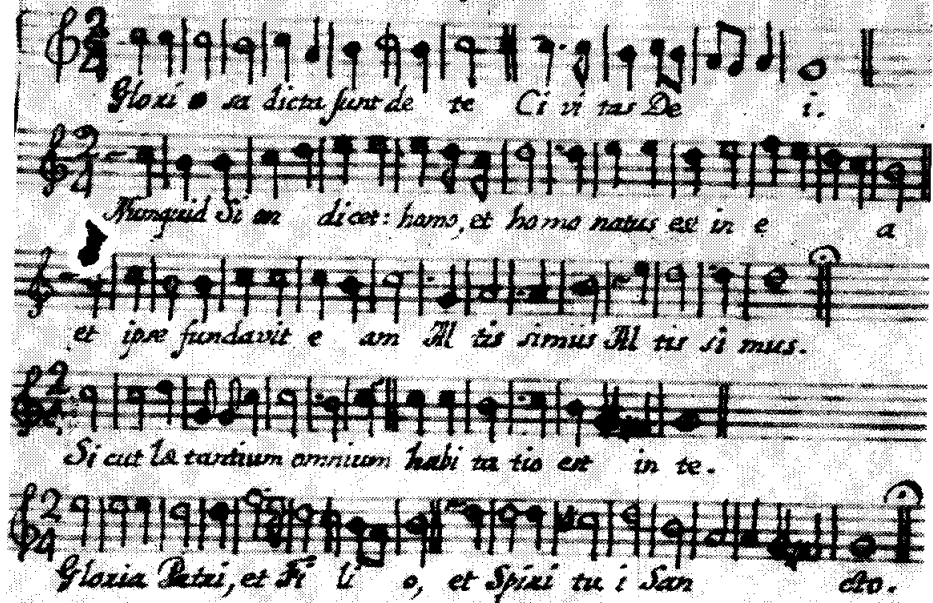 Glori o sa dicta sunt de te Ci vi tas De i.
Nunquid Si on dicet: homo, et homo natus est in e a
et ipse fundavit e am Al tis simus Al tis si mus.
Si cut læ tantium omnium habi ta tio est in te.
Gloria Patri, et Fi li o, et Spiri tu i San cto.